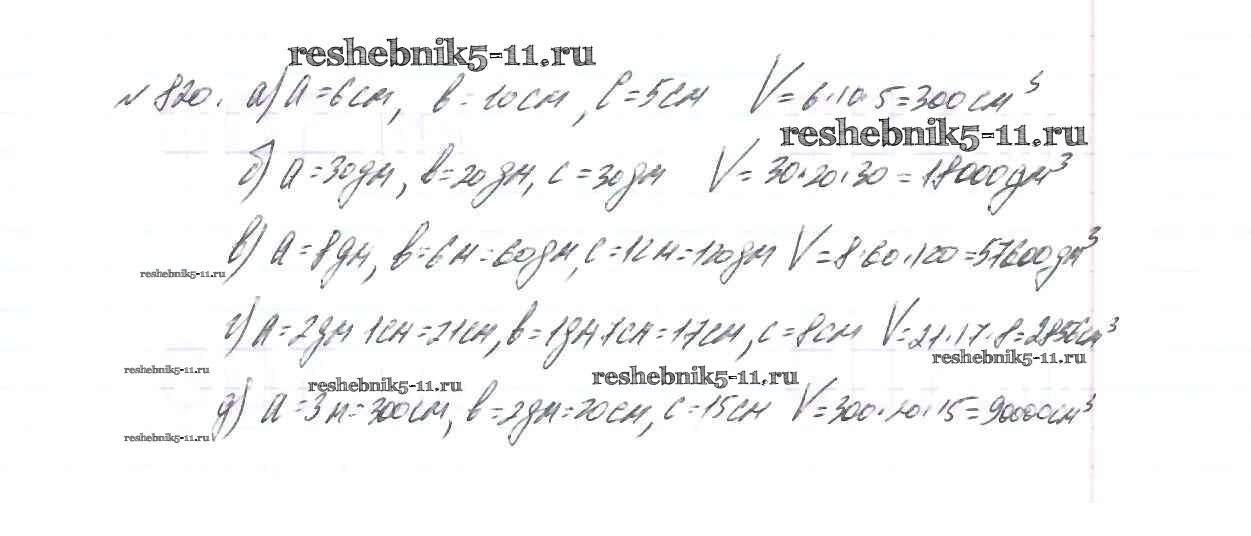 reshebnik5-11.ru
№ 820. а) a = 6 см, b = 10 см, c = 5 см V = 6·10·5 = 300 см³
reshebnik5-11.ru
б) a = 30 дм, b = 20 дм, c = 30 дм V = 30·20·30 = 18000 дм³
в) a = 8 дм, b = 6 м = 60 дм, c = 12 м = 120 дм V = 8·60·120 = 57600 дм³
reshebnik5-11.ru
г) a = 2 дм 1 см = 21 см, b = 1 дм 7 см = 17 см, c = 8 см V = 21·17·8 = 2856 см³
reshebnik5-11.ru
reshebnik5-11.ru
reshebnik5-11.ru
reshebnik5-11.ru
д) a = 3 м = 300 см, b = 2 дм = 20 см, c = 15 см V = 300·20·15 = 90000 см³
reshebnik5-11.ru